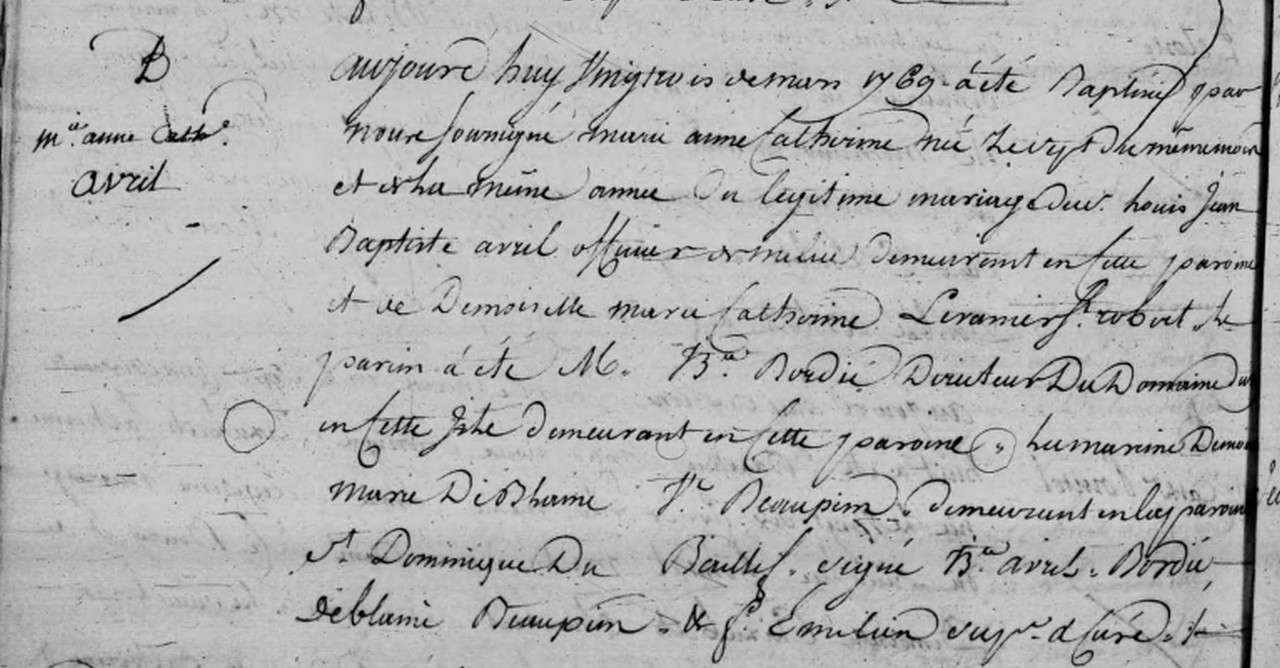 B
mie. anne Cathe.
avril
aujourd huy Vingtrois de mars 1769 a été Baptisée par
nous soussigné marie anne Catherine née le du même mois
et de la même année du legitime mariage de louis Jean
Baptiste avril officier de milice demeurant en cette paroisse
et de Demoiselle marie Catherine robert le
parin a été M. Bte Bordié Directeur Du Domaine du
en cette Isle demeurant en cette paroisse. La marine Demoi
marie De Blaine Ve. Beaupin. demeurant en la paroisse
St. Dominique Du Baillif. signé Bte avril. Bordié,
deblaine Beaupin. & f. Emilien curé.